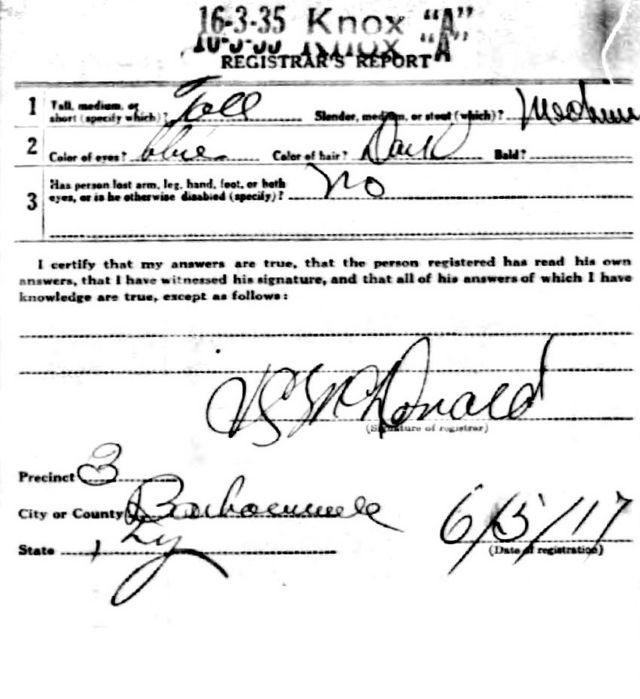 16-3-35 Knox "A"
16-3-35 Knox "A"
REGISTRAR'S REPORT
1 Tall, medium, or short (specify which)? Tall Slender, medium, or stout (which)? Medium
2 Color of eyes? blue Color of hair? Dark Bald?
3 Has person lost arm, leg, hand, foot, or both eyes, or is he otherwise disabled (specify)? No
I certify that my answers are true, that the person registered has read his own
answers, that I have witnessed his signature, and that all of his answers of which I have
knowledge are true, except as follows:
McDonald
(Signature of registrar)
Precinct 3
City or County Barbourville
State Ky
6/5/17
(Date of registration)